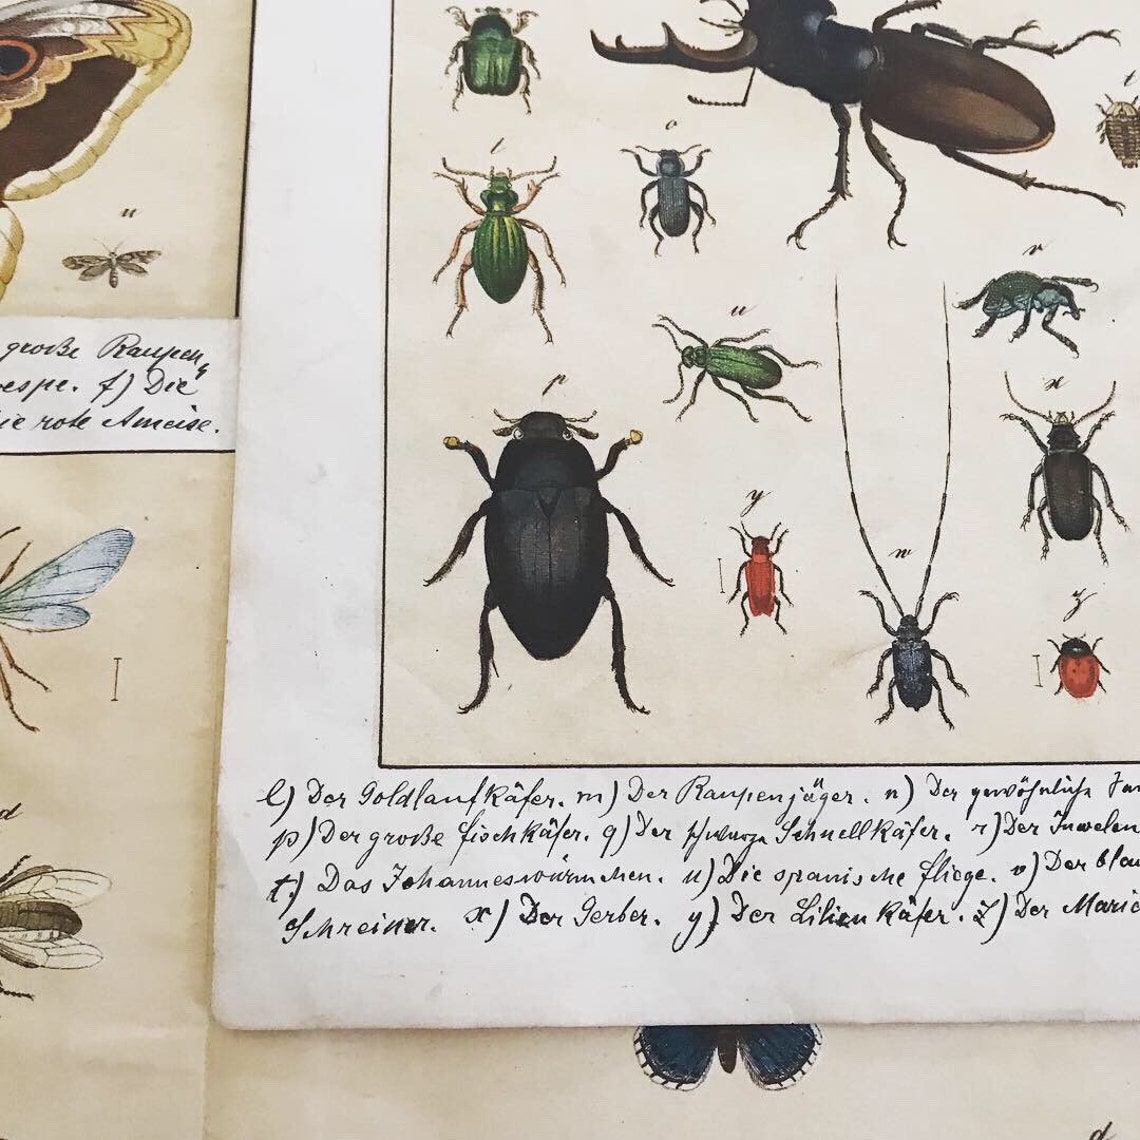 große Raupen,
wespe. f) Die
die rote Ameise.
u
d
l
o
t
r
u
p
x
y
w
z
l) Der Goldlaufkäfer. m) Der Raupenjäger. n) Der gewöhnliche
p) Der große Fischkäfer. q) Der schwarze Schnellkäfer. r) Der Juwelen
t) Das Johanneswürmchen. u) Die spanische Fliege. v) Der blau
Schreiner. x) Der Gerber. y) Der Lilienkäfer. z) Der Marie
d